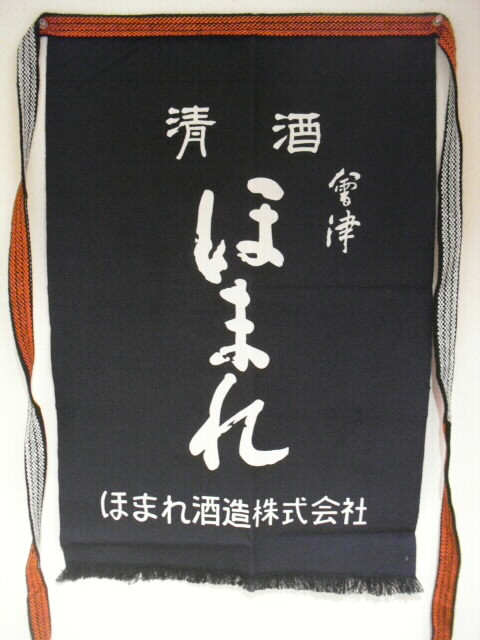 清酒
會津
ほまれ
ほまれ酒造株式会社